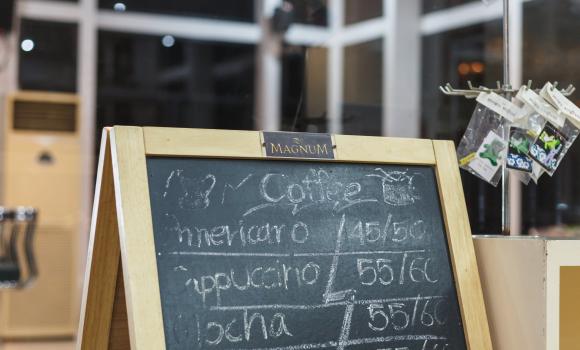 MAGNUM
Coffee
Americano 45/50
Cappuccino 55/60
Mocha 55/60